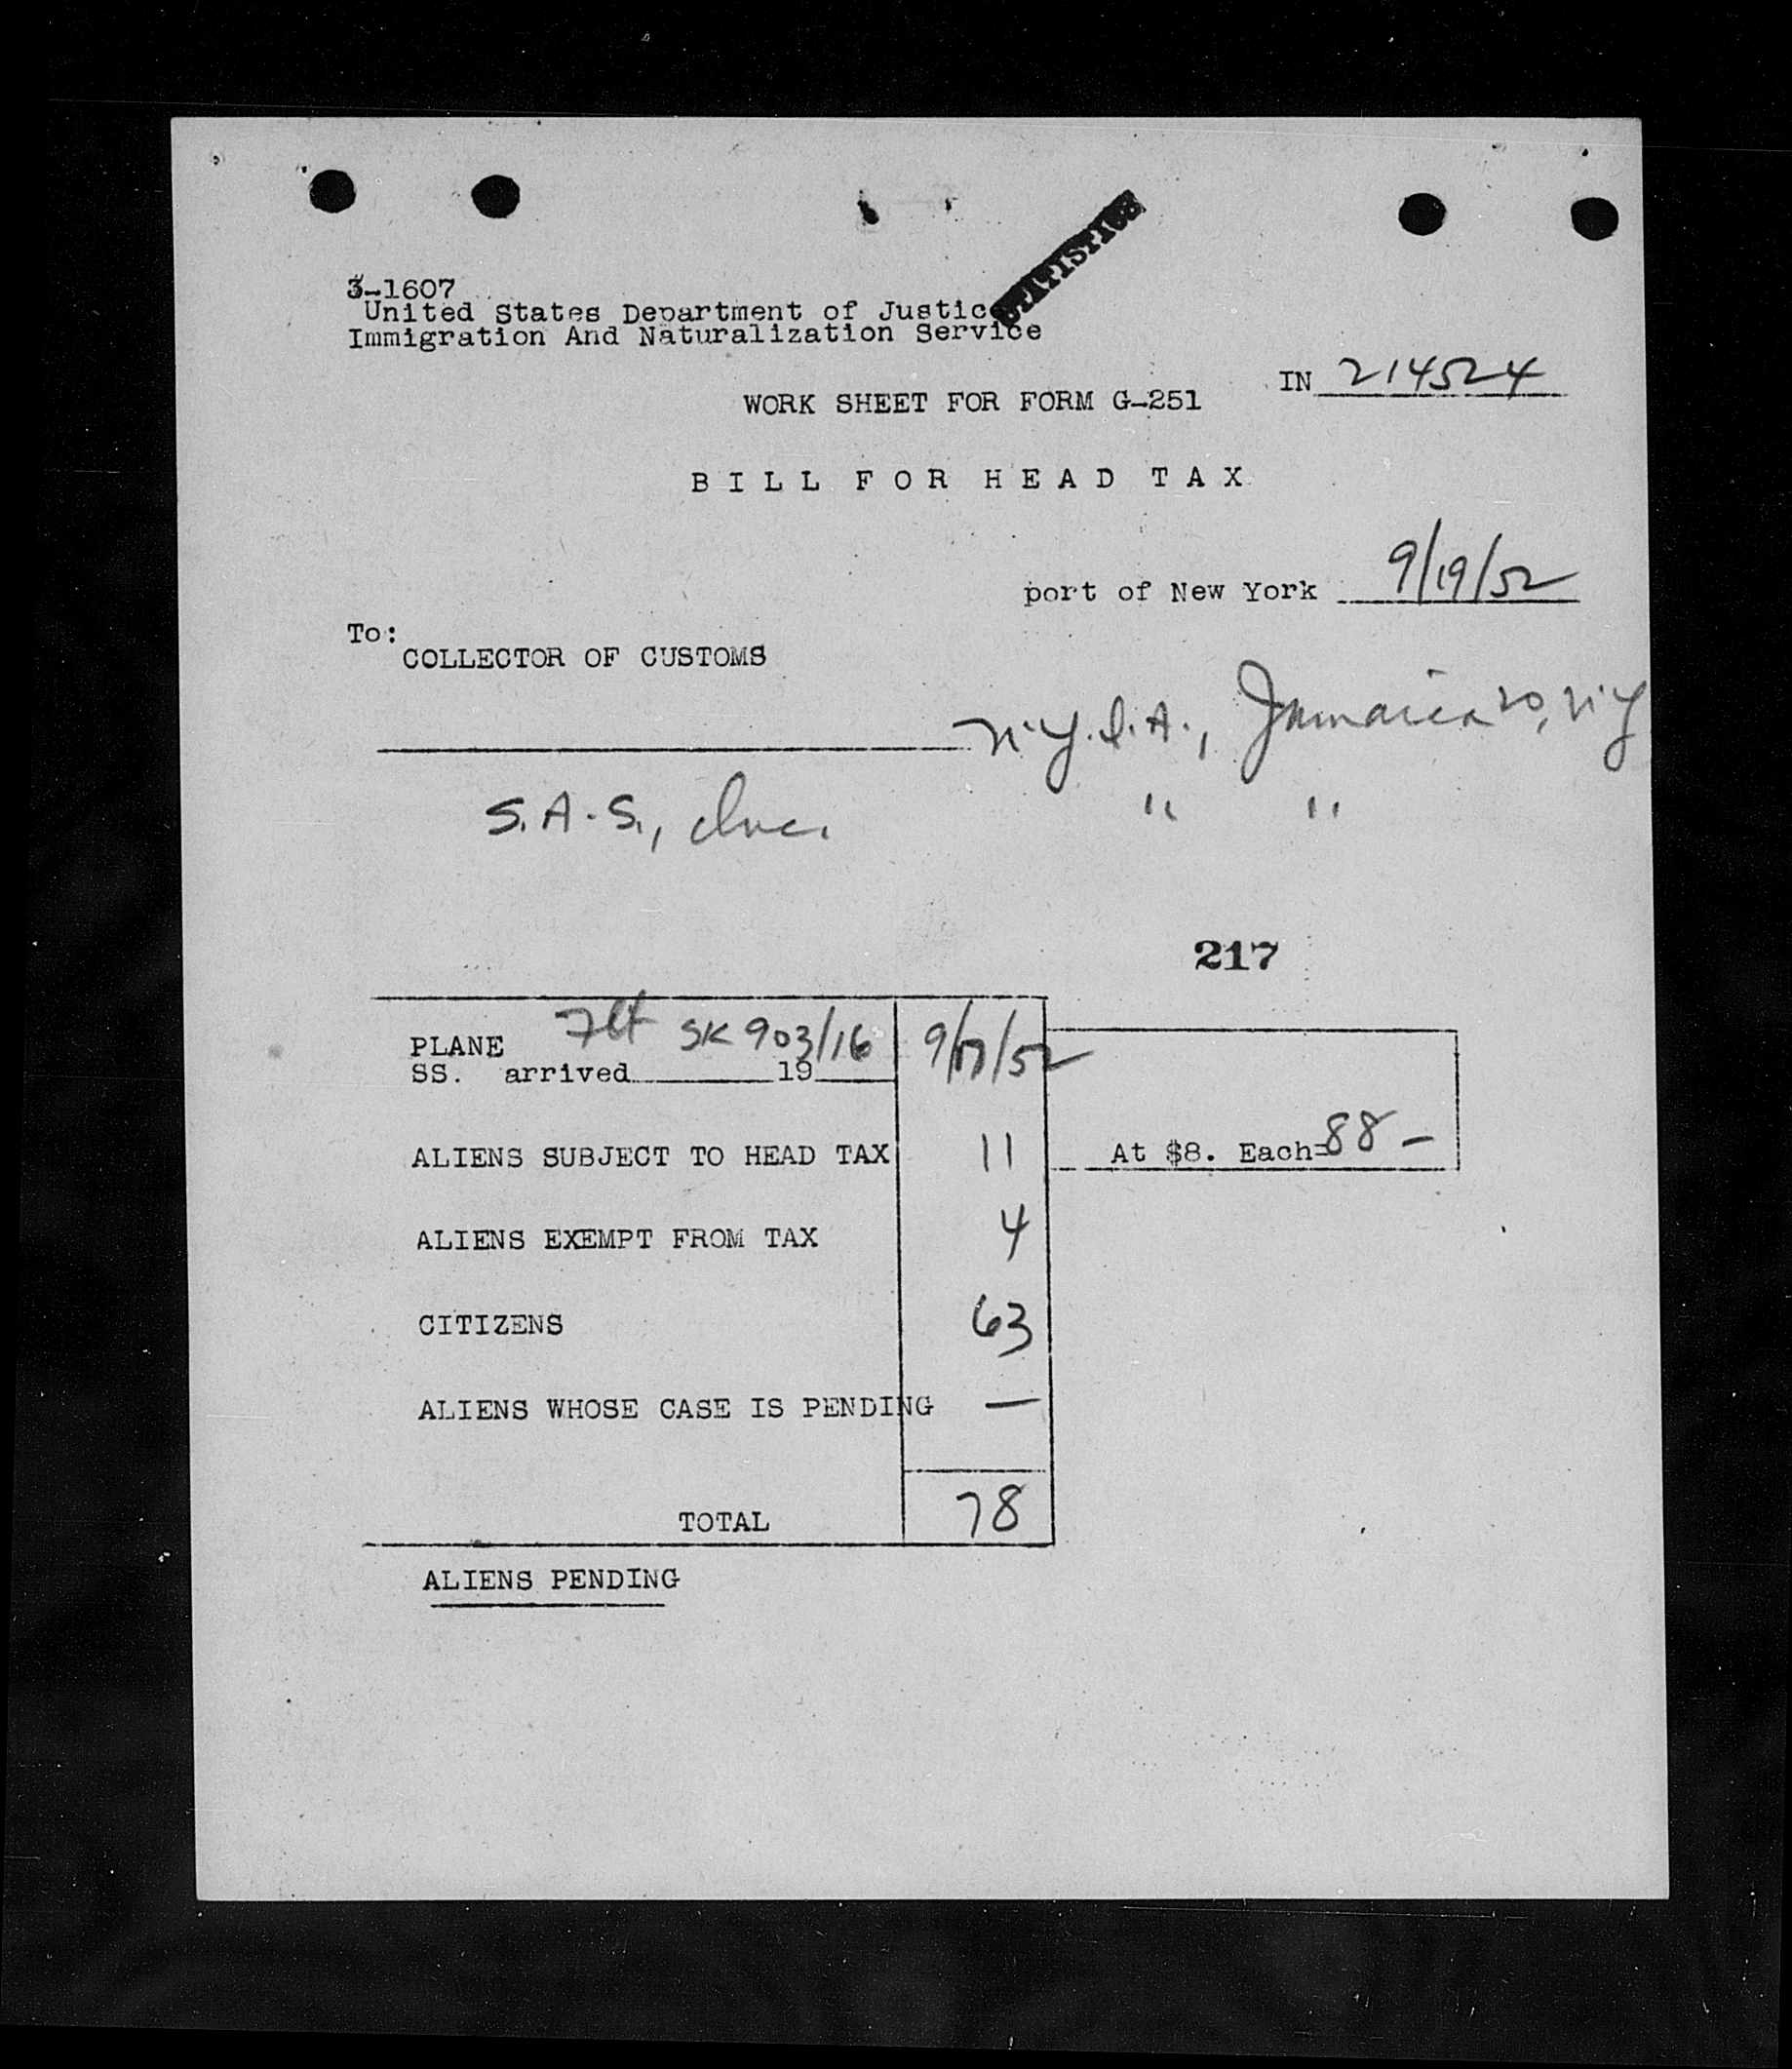 STATISTICS
3-1607
United States Department of Justice
Immigration And Naturalization Service
IN 214524
WORK SHEET FOR FORM G-251
BILL FOR HEAD TAX
port of New York 9/19/52
To:
COLLECTOR OF CUSTOMS
N.Y.I.A., Jamaica 20, N.Y
S.A.S., Inc. " "
217
PLANE Flt SK 903/16 9/17/52
SS. arrived 19
ALIENS SUBJECT TO HEAD TAX 11 At $8. Each=88 —
ALIENS EXEMPT FROM TAX 4
CITIZENS 63
ALIENS WHOSE CASE IS PENDING —
TOTAL 78
ALIENS PENDING